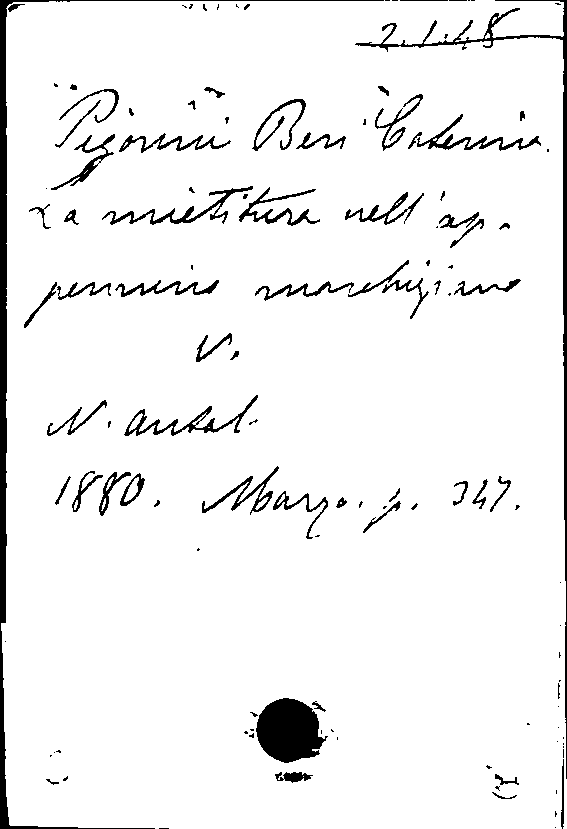 2.1.48
Pigorini Beri Caterina.
La mietitura nell'ap-
pennino marchigiano
V.
N. antol.
1880. Marzo. p. 347.